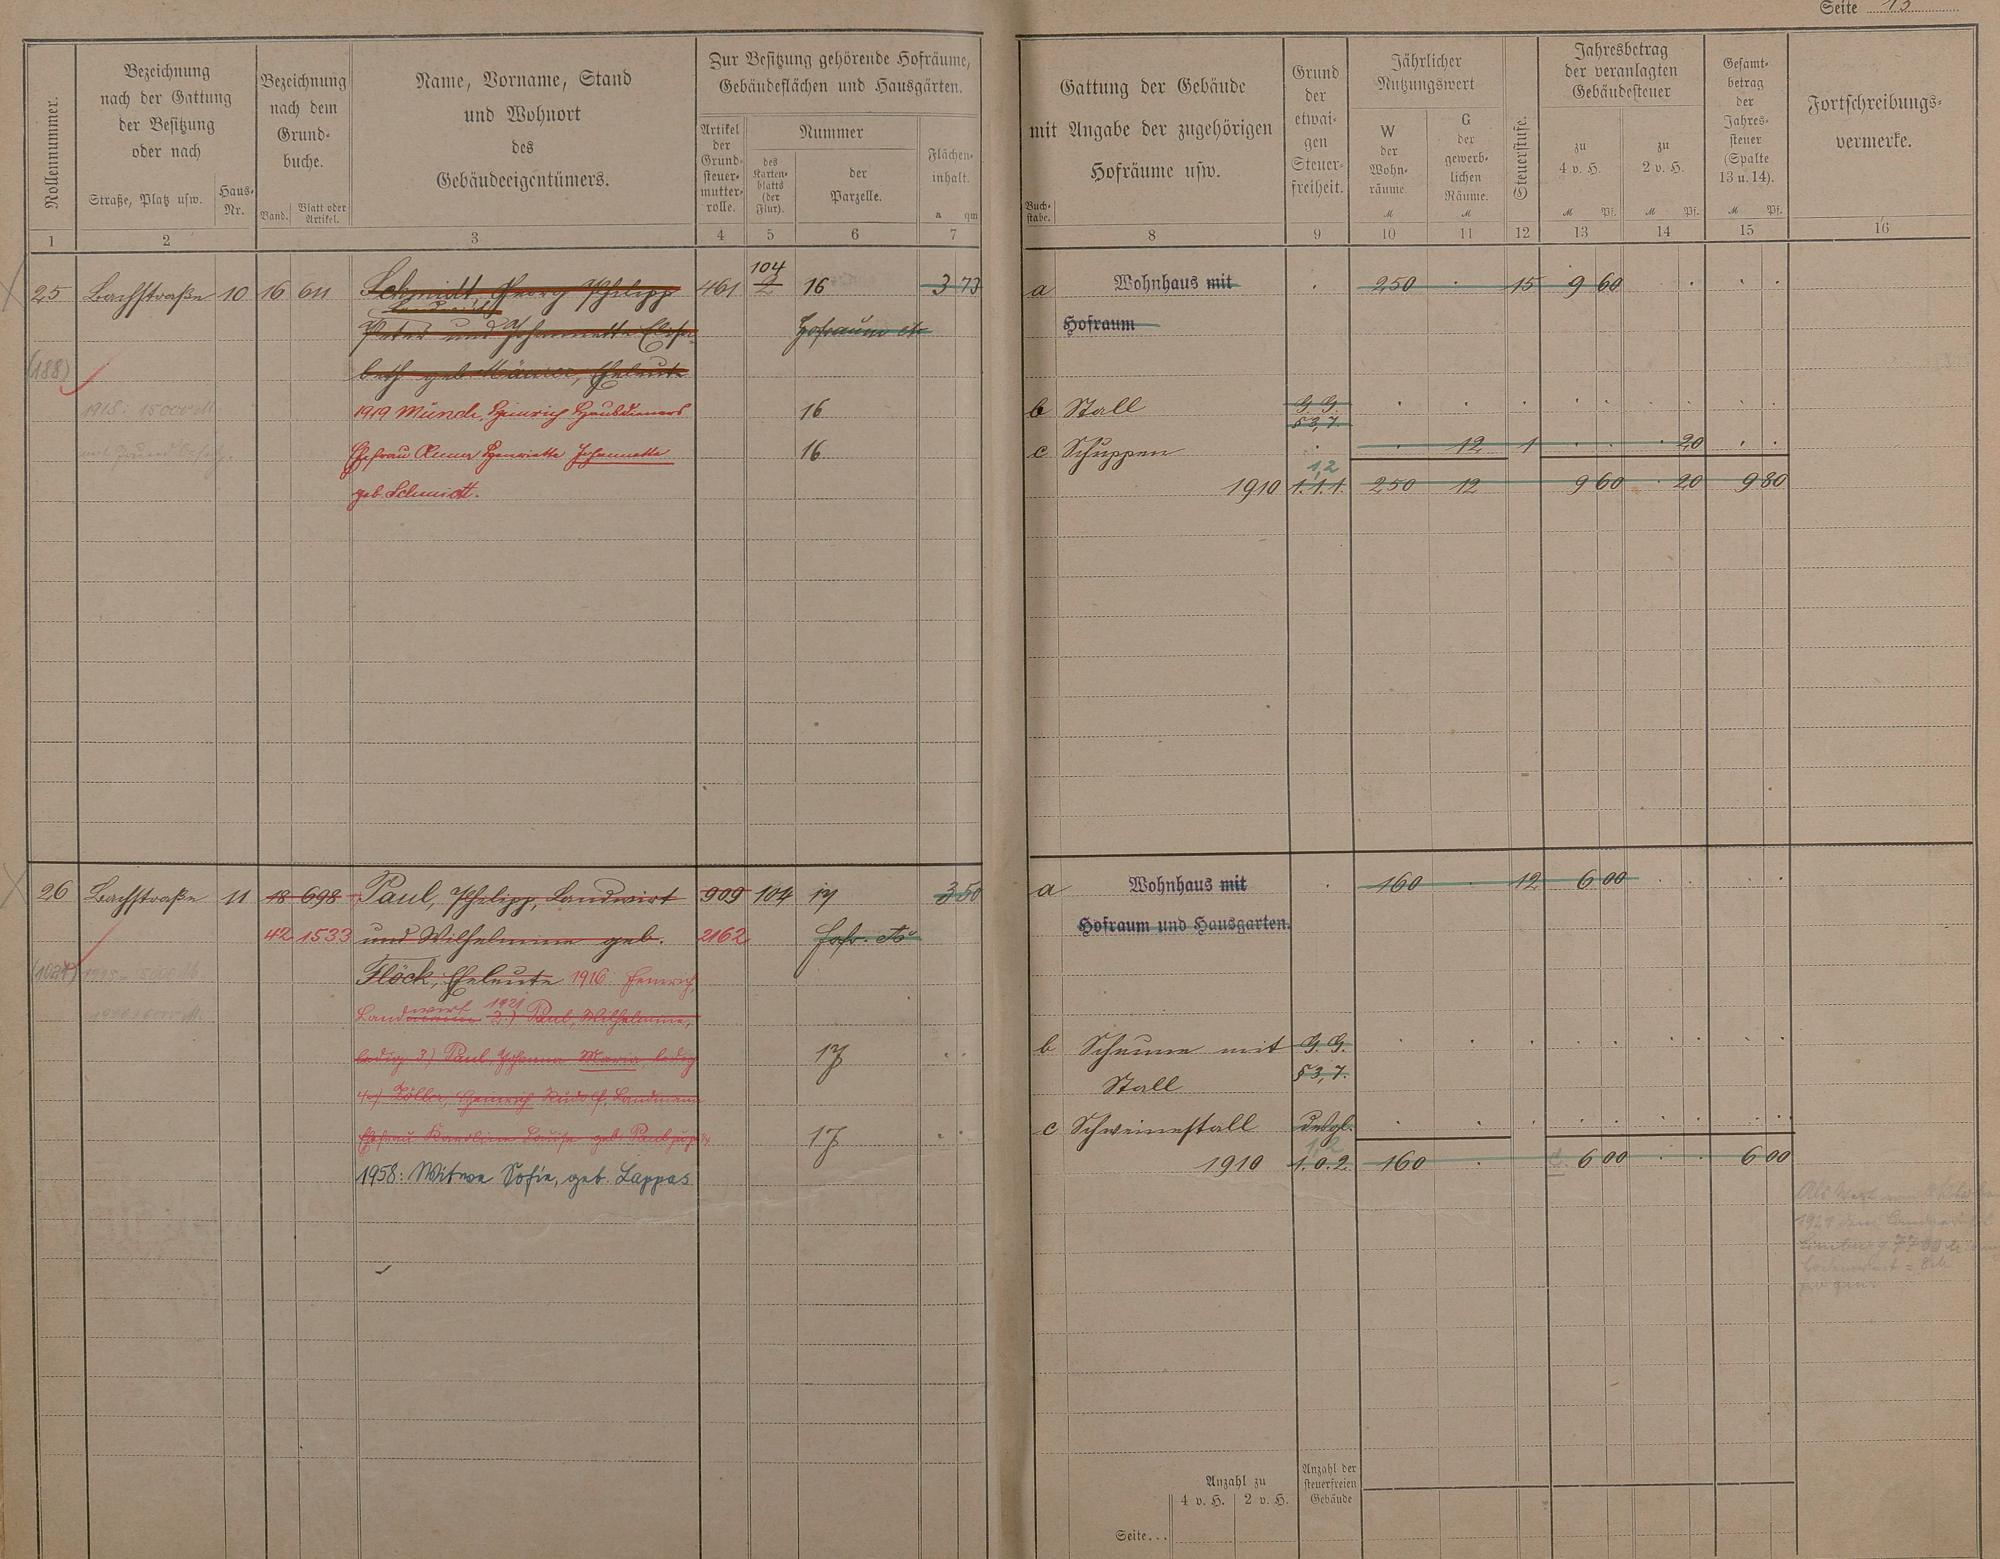 Seite 13
Rollennummer.
Bezeichnung
nach der Gattung
der Besitzung
oder nach
Straße, Platz usw.
Haus-
Nr.
Bezeichnung
nach dem
Grund-
buche.
Band.
Blatt oder
Artikel.
Name, Vorname, Stand
und Wohnort
des
Gebäudeeigentümers.
Zur Besitzung gehörende Hofräume,
Gebäudeflächen und Hausgärten.
Artikel
der
Grund-
steuer-
mutter-
rolle.
Nummer
des
Karten-
blatts
(der
Flur).
der
Parzelle.
Flächen-
inhalt.
a qm
1 2 3 4 5 6 7
Gattung der Gebäude
mit Angabe der zugehörigen
Hofräume usw.
Buch-
stabe.
Grund
der
etwai-
gen
Steuer-
freiheit.
Jährlicher
Nutzungswert
W
der
Wohn-
räume.
M
G
der
gewerb-
lichen
Räume.
M
Steuerstufe.
Jahresbetrag
der veranlagten
Gebäudesteuer
zu
4 v. H.
M Pf.
zu
2 v. H.
M Pf.
Gesamt-
betrag
der
Jahres-
steuer
(Spalte
13 u. 14).
M Pf.
Fortschreibungs-
vermerke.
8 9 10 11 12 13 14 15 16
25 Bachstraße 10 16 611 Schmidt, Georg Philipp 461 104 2 16 3 73
Landwirth
Peter und Johannette Elisa- Hofraum etc
beth geb. Eheleute
(188)
1918: 15000 M
1919 Münch, Heinrich Hausdieners 16
Ehefrau Anna Henriette Johannette 16
geb. Schmidt.
a Wohnhaus mit 250 15 9 60
Hofraum
b Stall G. G.
§ 3,7.
c Schuppen 12 1 20
1,2
1910 1.1.1. 250 12 9 60 20 9 80
26 Bachstraße 11 18 698 Paul, Philipp, Landwirt 909 104 17 3 50
42 1533 und Wilhelmine geb. 2162 Hofr. etc
Flöck, Eheleute 1916: Heinrich,
Landwirt 1921 2.) Paul, Wilhelmine,
ledig 3) Paul, Johanna Maria, ledig 17
4) Zöller, Heinrich Rudolf, Landmann
Ehefrau Karoline Louise geb. Paul 17
1958: Witwe Sofie, geb. Lappas
a Wohnhaus mit 160 12 6 00
Hofraum und Hausgarten.
b Scheune mit G. G.
Stall § 3,7.
c Schweinestall desgl.
1,2
1910 1.0.2. 160 6 00 6 00
Anzahl zu
4 v. H. 2 v. H.
Anzahl der
steuerfreien
Gebäude
Seite...